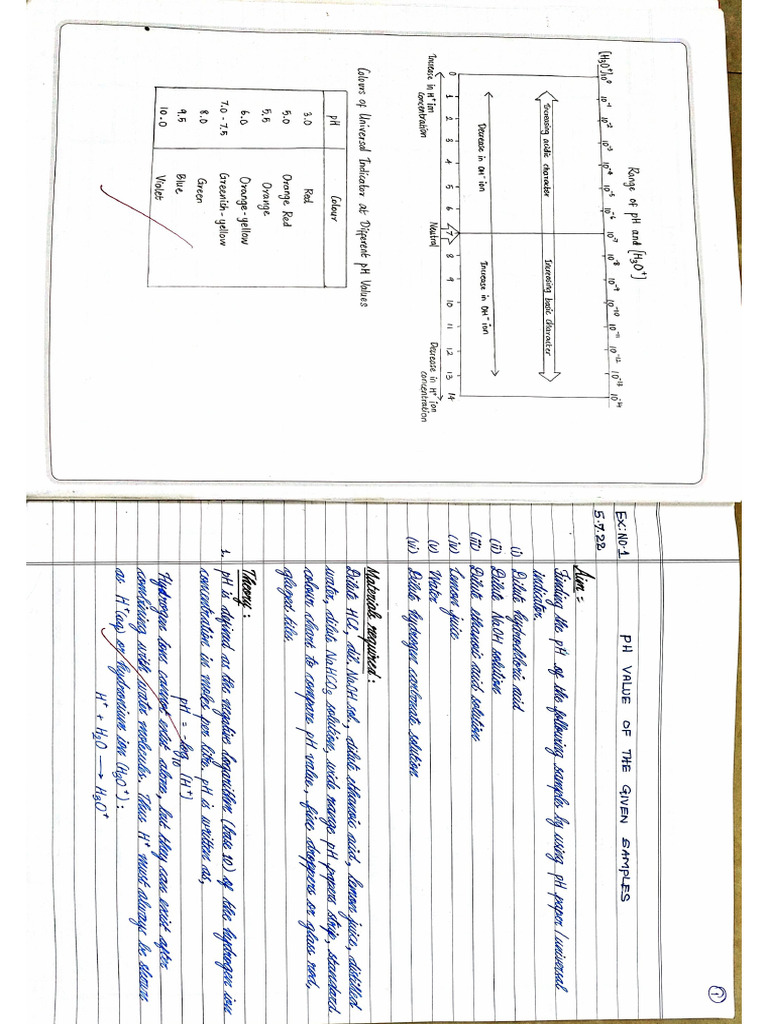 Range of pH and [H₃O⁺]
[H₃O⁺]10⁰ 10⁻¹ 10⁻² 10⁻³ 10⁻⁴ 10⁻⁵ 10⁻⁶ 10⁻⁷ 10⁻⁸ 10⁻⁹ 10⁻¹⁰ 10⁻¹¹ 10⁻¹² 10⁻¹³ 10⁻¹⁴
Increasing acidic character Increasing basic character
Decrease in OH⁻ ion Increase in OH⁻ ion
0 1 2 3 4 5 6 7 8 9 10 11 12 13 14
Increase in H⁺ ion Neutral Decrease in H⁺ ion
concentration concentration
Colours of Universal Indicator at Different pH Values
pH Colour
3.0 Red
5.0 Orange Red
5.5 Orange
6.0 Orange-yellow
7.0 - 7.5 Greenish-yellow
8.0 Green
9.5 Blue
10.0 Violet
1
Ex: No.1 PH VALUE OF THE GIVEN SAMPLES
5.7.22
Aim:
Finding the pH of the following samples by using pH paper / universal
indicator.
(i) Dilute hydrochloric acid
(ii) Dilute NaOH solution
(iii) Dilute ethanoic acid solution
(iv) Lemon juice
(v) Water
(vi) Dilute hydrogen carbonate solution
Materials required:
Dilute HCl, dil. NaOH sol., dilute ethanoic acid, lemon juice, distilled
water, dilute NaHCO₃ solution, wide range pH papers strip, standard
colour chart to compare pH value, five droppers or glass rod,
glazed tiles.
Theory:
1. pH is defined as the negative logarithm (base 10) of the hydrogen ion
concentration in moles per litre, pH is written as,
pH = -log₁₀ (H⁺)
Hydrogen ions cannot exist alone, but they can exist after
combining with water molecules. Thus H⁺ must always be shown
as H⁺(aq) or hydronium ion (H₃O⁺):
H⁺ + H₂O ⟶ H₃O⁺